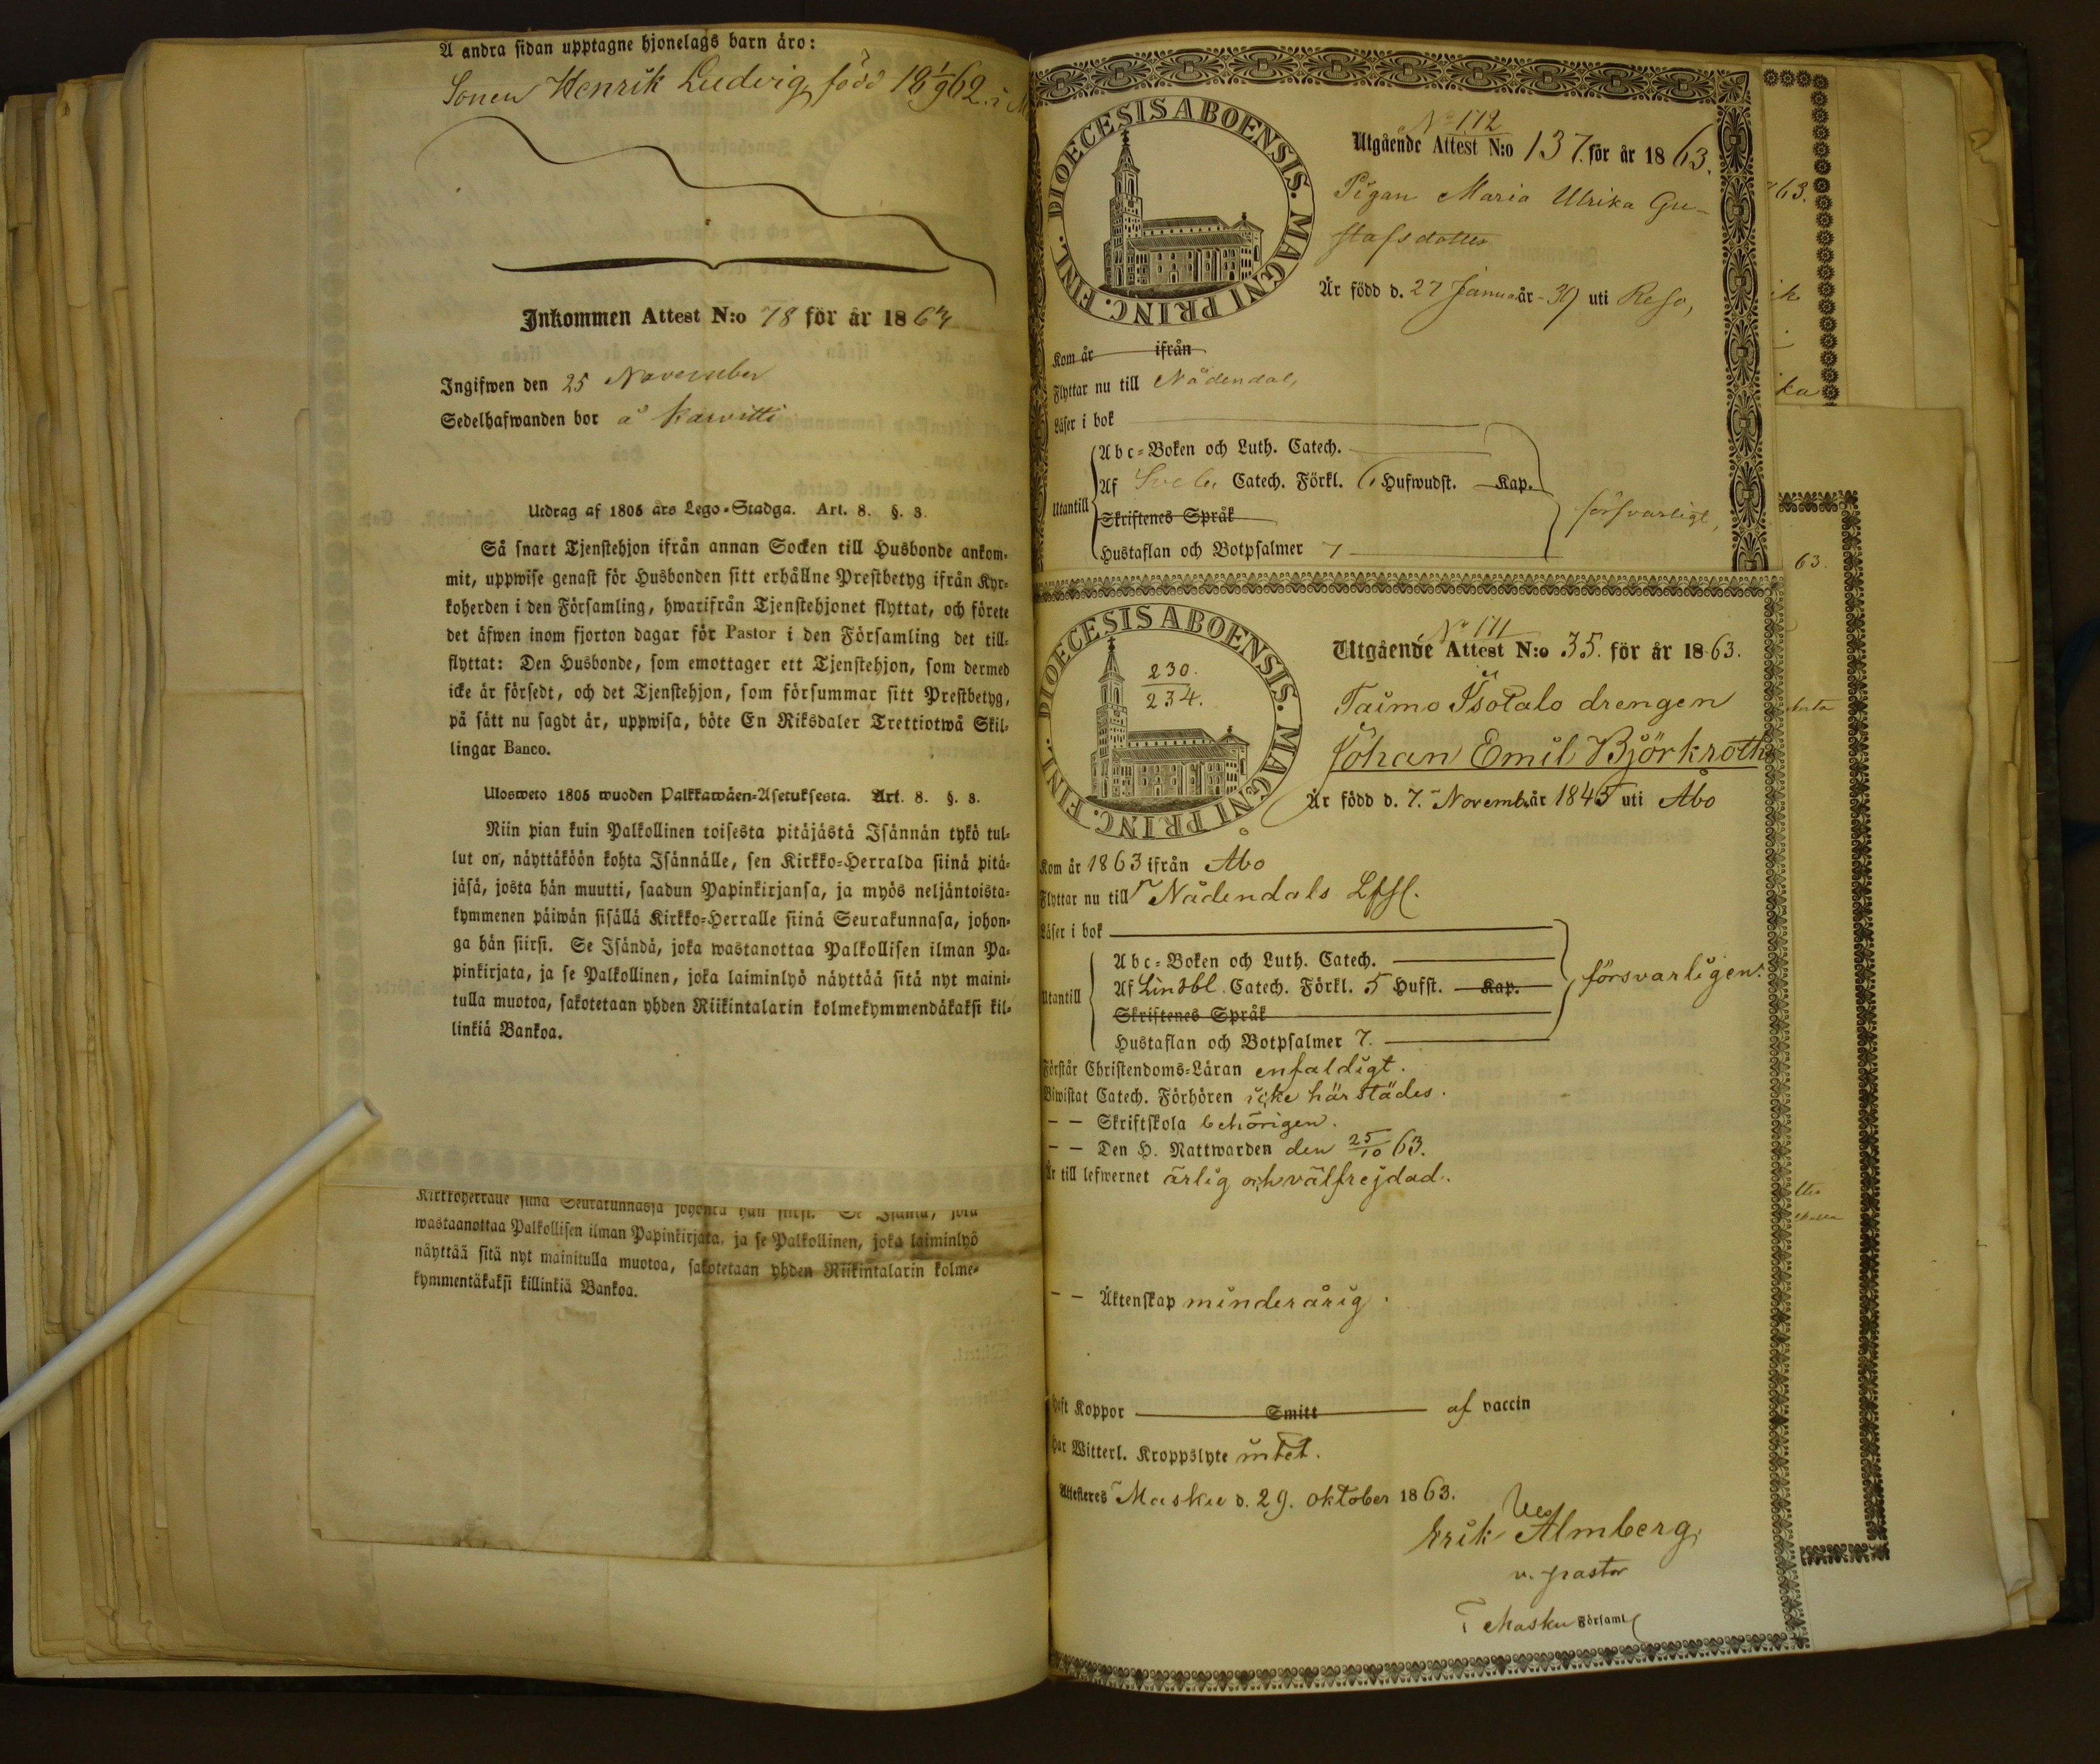 Å andra sidan upptagne hjonelags barn äro:
Sonen Henrik Ludvig, född 18 1/9 62. i
Inkommen Attest N:o 78 för år 18
Ingifwen den 25 November
Sedelhafwanden bor å
Utdrag af 1805 års Lego-Stadga. Art. 8. §. 3.
Så snart Tjenstehjon ifrån annan Socken till Husbonde ankom-
mit, uppwise genast för Husbonden sitt erhållne Prestbetyg ifrån Kyr-
koherden i den Församling, hwarifrån Tjenstehjonet flyttat, och förete
det äfwen inom fjorton dagar för Pastor i den Församling det till-
flyttat: Den Husbonde, som emottager ett Tjenstehjon, som dermed
icke är försedt, och det Tjenstehjon, som försummar sitt Prestbetyg,
på sätt nu sagdt är, uppwisa, böte En Riksdaler Trettiotwå Skil-
lingar Banco.
Ulosweto 1805 wuoden Palkkawäen-Asetuksesta. Art. 8. §. 3.
Niin pian kuin Palkollinen toisesta pitäjästä Isännän tykö tul-
lut on, näyttäköön kohta Isännälle, sen Kirkko-Herralda siinä pitä-
jäsä, josta hän muutti, saadun Papinkirjansa, ja myös neljäntoista-
kymmenen päiwän sisällä Kirkko-Herralle siinä Seurakunnasa, johon-
ga hän siirsi. Se Isändä, joka wastanottaa Palkollisen ilman Pa-
pinkirjata, ja se Palkollinen, joka laiminlyö näyttää sitä nyt maini-
tulla muotoa, sakotetaan yhden Riikintalarin kolmekymmendäkaksi kil-
linkiä Bankoa.
Kirkkoherralle siinä Seurakunnasja johonka hän siirsi. Se Isäntä, joka
wastaanottaa Palkollisen ilman Papinkirjata, ja se Palkollinen, joka laiminlyö
näyttää sitä nyt mainitulla muotoa, sakotetaan yhden Riikintalarin kolme-
kymmentäkaksi killinkiä Bankoa.
DIOECESIS ABOENSIS. MAGNI PRINC. FINL.
No 172
Utgående Attest N:o 137. för år 1863.
Pigan Maria Ulrika Gu-
stafsdotter
Är född d. 27 Januari år -39 uti Reso,
Kom år ifrån
Flyttar nu till Nådendal,
Läser i bok
Abc-Boken och Luth. Catech.
Utantill
Af Sveb. Catech. Förkl. 6 Hufwudst. Kap.
Skriftenes Språk
försvarligt,
Hustaflan och Botpsalmer 7
DIOECESIS ABOENSIS. MAGNI PRINC. FINL.
230.
234.
No 171
Utgående Attest N:o 35. för år 1863.
Taimo Isotalo drengen
Johan Emil Björkroth
Är född d. 7. Novemb. år 1845 uti Åbo
Kom år 1863 ifrån Åbo
Flyttar nu till Nådendals Lfsl.
Läser i bok
Abc-Boken och Luth. Catech.
Utantill
Af Lindbl. Catech. Förkl. 5 Hufst. Kap.
försvarligen.
Skriftenes Språk
Hustaflan och Botpsalmer 7.
Förstår Christendoms-Läran enfaldigt.
Biwistat Catech. Förhören icke härstädes.
— — Skriftskola behörigen.
— — Den H. Nattwarden den 25/10 63.
Är till lefwernet ärlig och välfrejdad.
— — Äktenskap minderårig.
Haft Koppor Smitt af vaccin
Har Witterl. Kroppslyte intet.
Attesteres Masku d. 29. oktober 1863.
Erik Almberg,
v. pastor
i Masku Församl.
63.
ka
63.